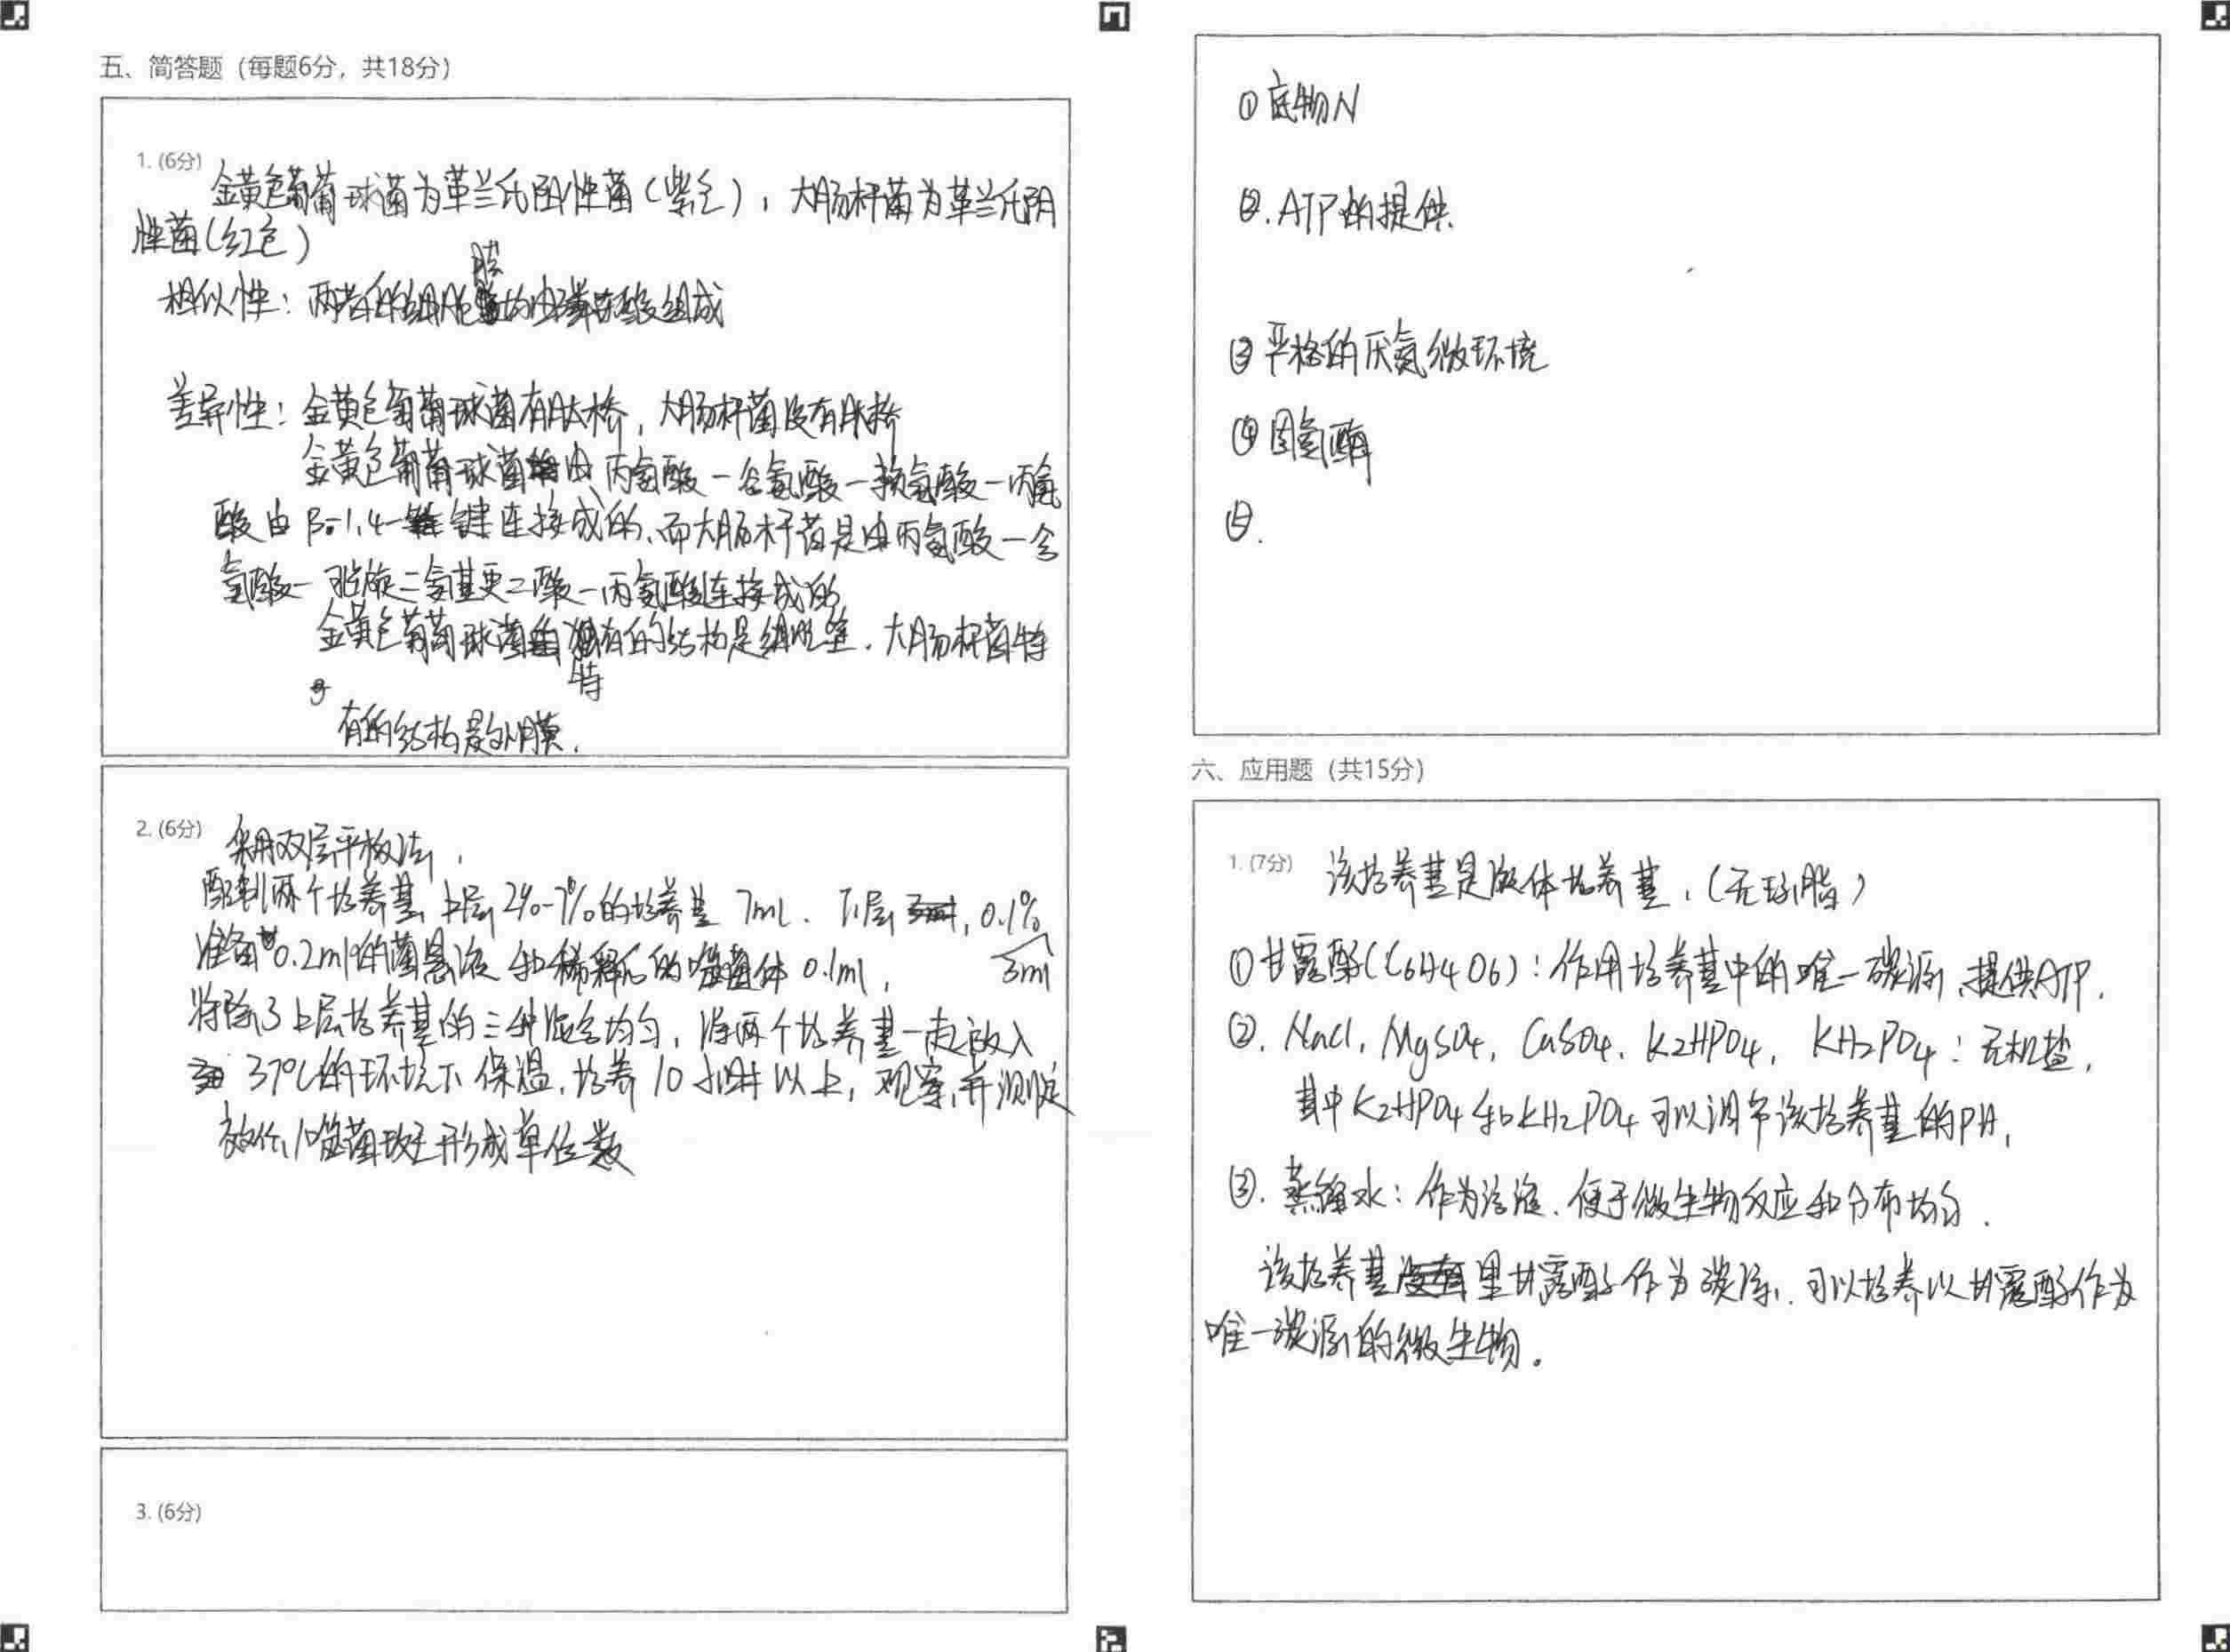 五、简答题（每题6分，共18分）
1. (6分)
金黄色葡萄球菌为革兰氏阳性菌（紫色），大肠杆菌为革兰氏阴
性菌（红色）
膜
相似性：两者的细胞均由磷壁酸组成
差异性：金黄色葡萄球菌有肽桥，大肠杆菌没有肽桥
金黄色葡萄球菌由丙氨酸－谷氨酸－赖氨酸－丙氨
酸由β-1,4-键连接成的，而大肠杆菌是由丙氨酸－谷
氨酸－消旋二氨基更二酸－丙氨酸连接成的
金黄色葡萄球菌有的结构是细胞壁．大肠杆菌特
特
有的结构是外膜．
2. (6分)
采用双层平板法，
配制两个培养基，上层2%-7%的培养基 7ml．下层，0.1%
3ml
准备0.2ml的菌悬液和稀释后的噬菌体0.1ml，
将除了上层培养基的三种混合均匀，将两个培养基一起放入
37℃的环境下保温，培养10小时以上，观察，并测定
效价，噬菌斑形成单位数
3. (6分)
① 底物N
②．ATP的提供
③ 严格的厌氧微环境
④ 固氮酶
⑤．
六、应用题（共15分）
1. (7分)
该培养基是液体培养基．（无琼脂）
①甘露醇（C6H4O6）：作用培养基中的唯一碳源，提供ATP．
②．NaCl，MgSO4，CaSO4，K2HPO4，KH2PO4：无机盐，
其中K2HPO4和KH2PO4可以调节该培养基的PH，
③．蒸馏水：作为溶液．便于微生物反应和分布均匀．
该培养基里甘露醇作为碳源，可以培养以甘露醇作为
唯一碳源的微生物。